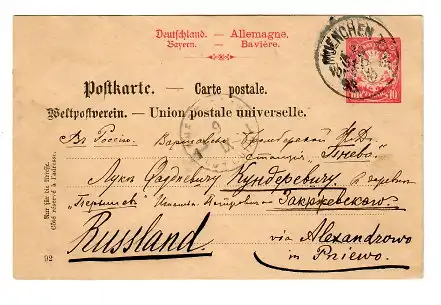 Deutschland. — Allemagne.
Bayern. — Bavière.
MUENCHEN
10
Postkarte. — Carte postale.
Weltpostverein. — Union postale universelle.
Въ Россію. Варшавско Бромбергской Ж.Д.
станція „Пнево“
Луки Фаддеевичу Кундеревичу. въ деревнѣ
Игнатія Петровича Закржевскаго.
Russland. via Alexandrowo
in Pniewo.
Nur für die Adresse.
Côté réservé à l'adresse.
92